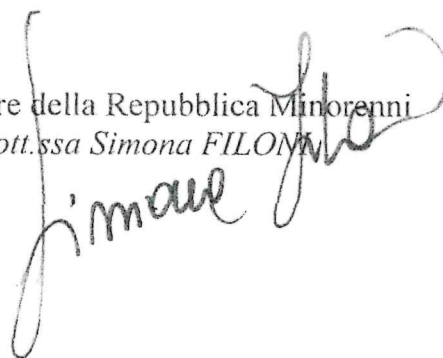 re della Repubblica Minorenni
ott.ssa Simona FILONI
Simona